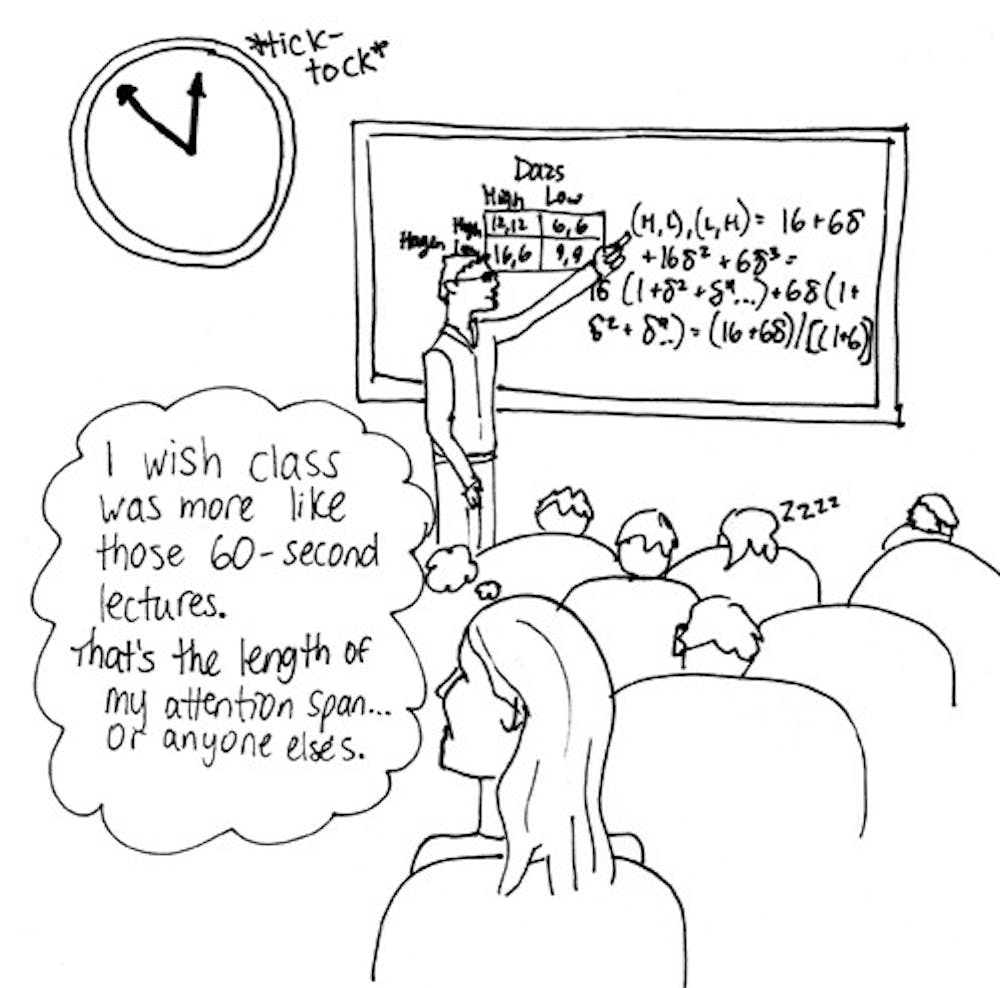 *tick-
tock*
Dazs
High Low
High 12,12 6,6
Hagen Low 16,6 9,9
(H,L),(L,H) = 16+6δ
+16δ²+6δ³=
16 (1+δ²+δ⁴...)+6δ(1+
δ²+δ⁴...)=(16+6δ)/[(1+δ)]
I wish class
was more like
those 60-second
lectures.
That's the length of
my attention span...
or anyone else's.
zzzz